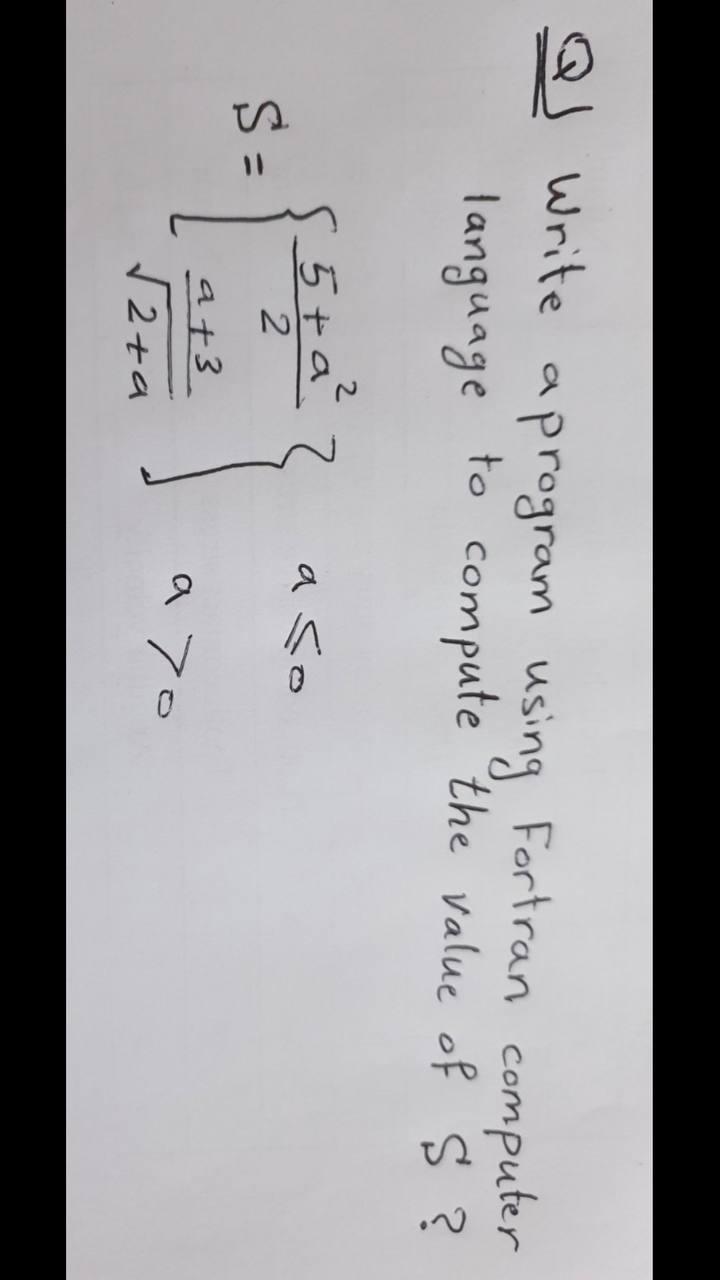 Q) Write a program using Fortran computer
language to compute the value of S ?
S = { (5 + a²) / 2 } a ≤ 0
[ (a + 3) / √(2 + a) ] a > 0